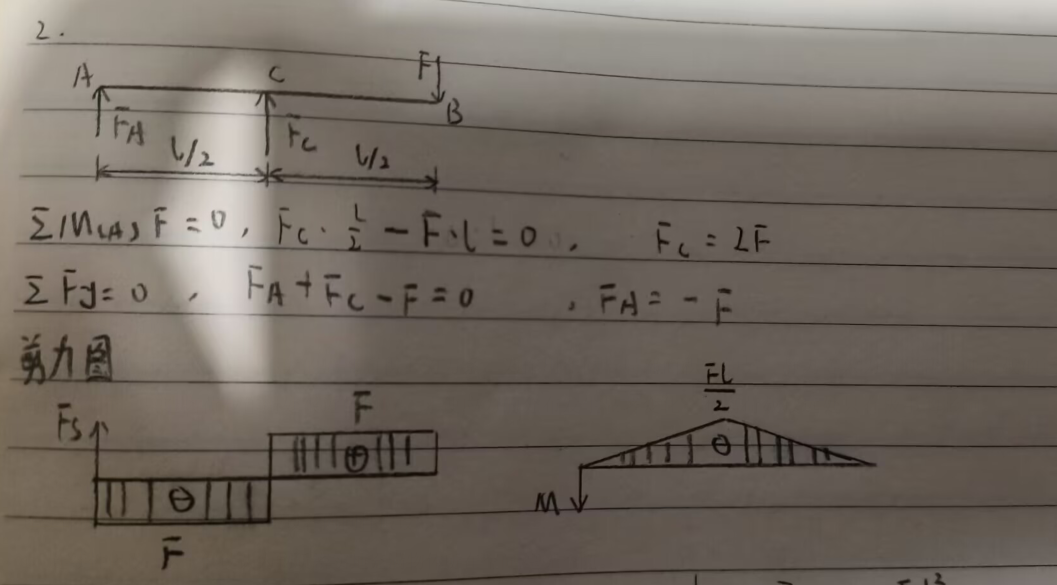 2.
A C F
B
F_A F_C
l/2 l/2
ΣM(A) F = 0, F_C · l/2 - F·l = 0, F_C = 2F
ΣFy = 0, F_A + F_C - F = 0, F_A = -F
剪力图
Fs F ⊕
⊖
F
Fl/2
⊖
M